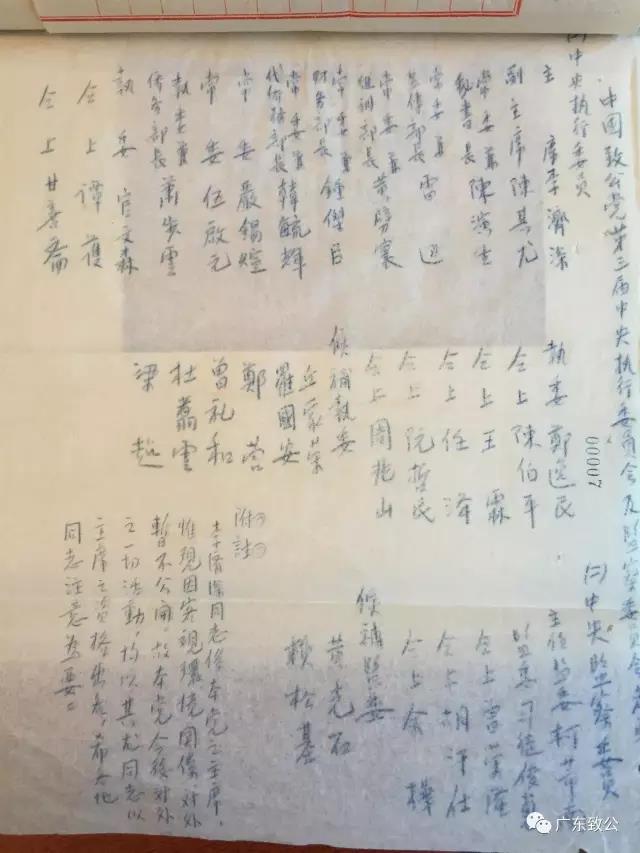 中國致公党第三届中央执行委員会及監察委員
㈠中央執行委員
主席李濟深
副主席陳其尤
常委兼秘書長陳演生
常委兼宣傳部長雷
常委兼組訓部長黄
常委兼財务部長鍾傑臣
常委兼代僑務部長韓毓輝
常委嚴錫煊
常委伍啟元
執委兼僑务部長蕭步雲
執委官文森
仝上譚護
仝上甘善齋
執委鄭逸民
仝上陳伯平
仝上王霖
仝上任澤
仝上阮哲民
仝上周兆山
候補執委
丘家榮
羅國安
鄭
曾礼和
杜蕭雲
梁超
㈡中央監察委員
主任監委
監委司徒俊
仝上雷
仝上胡
仝上余機
候補監委
黄克石
賴松基
附註
李濟深同志係本党之主席，
惟現因客观環境関係，对外
暫不公開，故本党今後对外
之一切活動，均以其尤同志以
主席之資格出
同志注意為要。
00007
广东致公